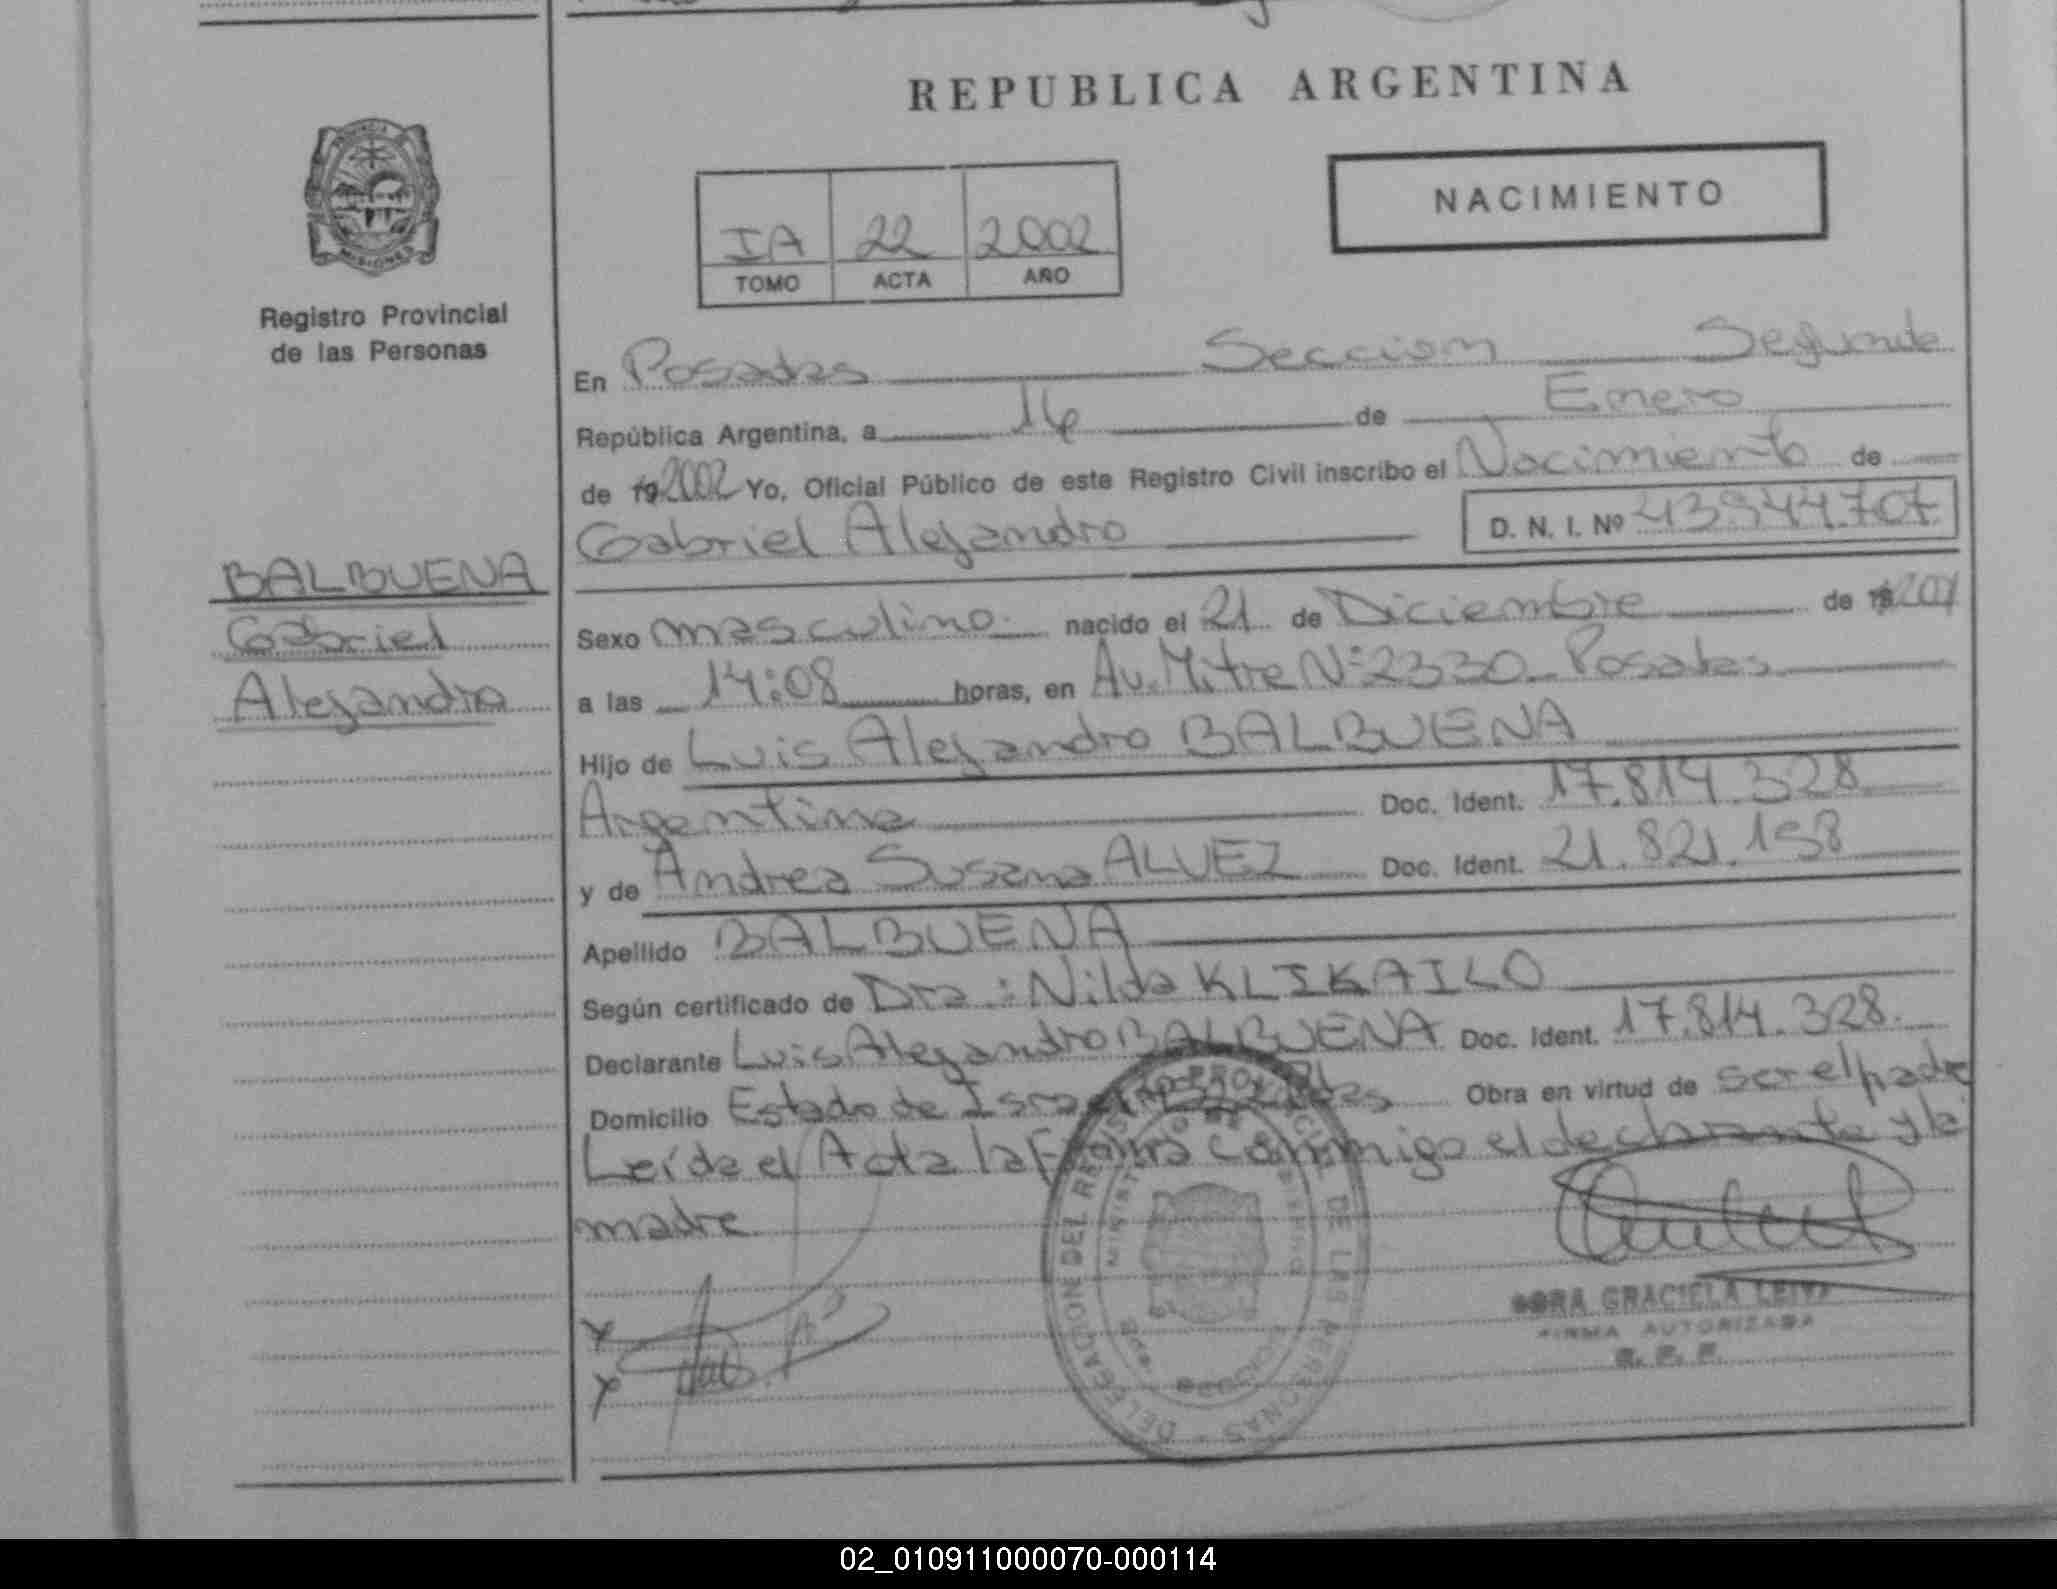 REPUBLICA ARGENTINA
NACIMIENTO
IA 22 2002
TOMO ACTA AÑO
PROVINCIA
MISIONES
Registro Provincial
de las Personas
BALBUENA
Gabriel
Alejandro
En Posadas Seccion Segunda
República Argentina, a 16 de Enero
de 192002 Yo, Oficial Público de este Registro Civil inscribo el Nacimiento de
Gabriel Alejandro D. N. I. Nº 43944.707
Sexo masculino. nacido el 21 de Diciembre de 2001
a las 14:08 horas, en Av. Mitre Nº 2330 Posadas
Hijo de Luis Alejandro BALBUENA
Argentina Doc. Ident. 17.814.328
y de Andrea Susana ALVEZ Doc. Ident. 21.821.158
Apellido BALBUENA
Según certificado de Dra: Nilda KLIKAILO
Declarante Luis Alejandro BALBUENA Doc. Ident. 17.814.328.
Domicilio Estado de Obra en virtud de ser el padre
Leída el Acta la Firma conmigo el declarante y la
madre
DELEGACION DEL REGISTRO PROVINCIAL DE LAS PERSONAS
GRACIELA LEIVA
FIRMA AUTORIZADA
R. P. P.
02_010911000070-000114